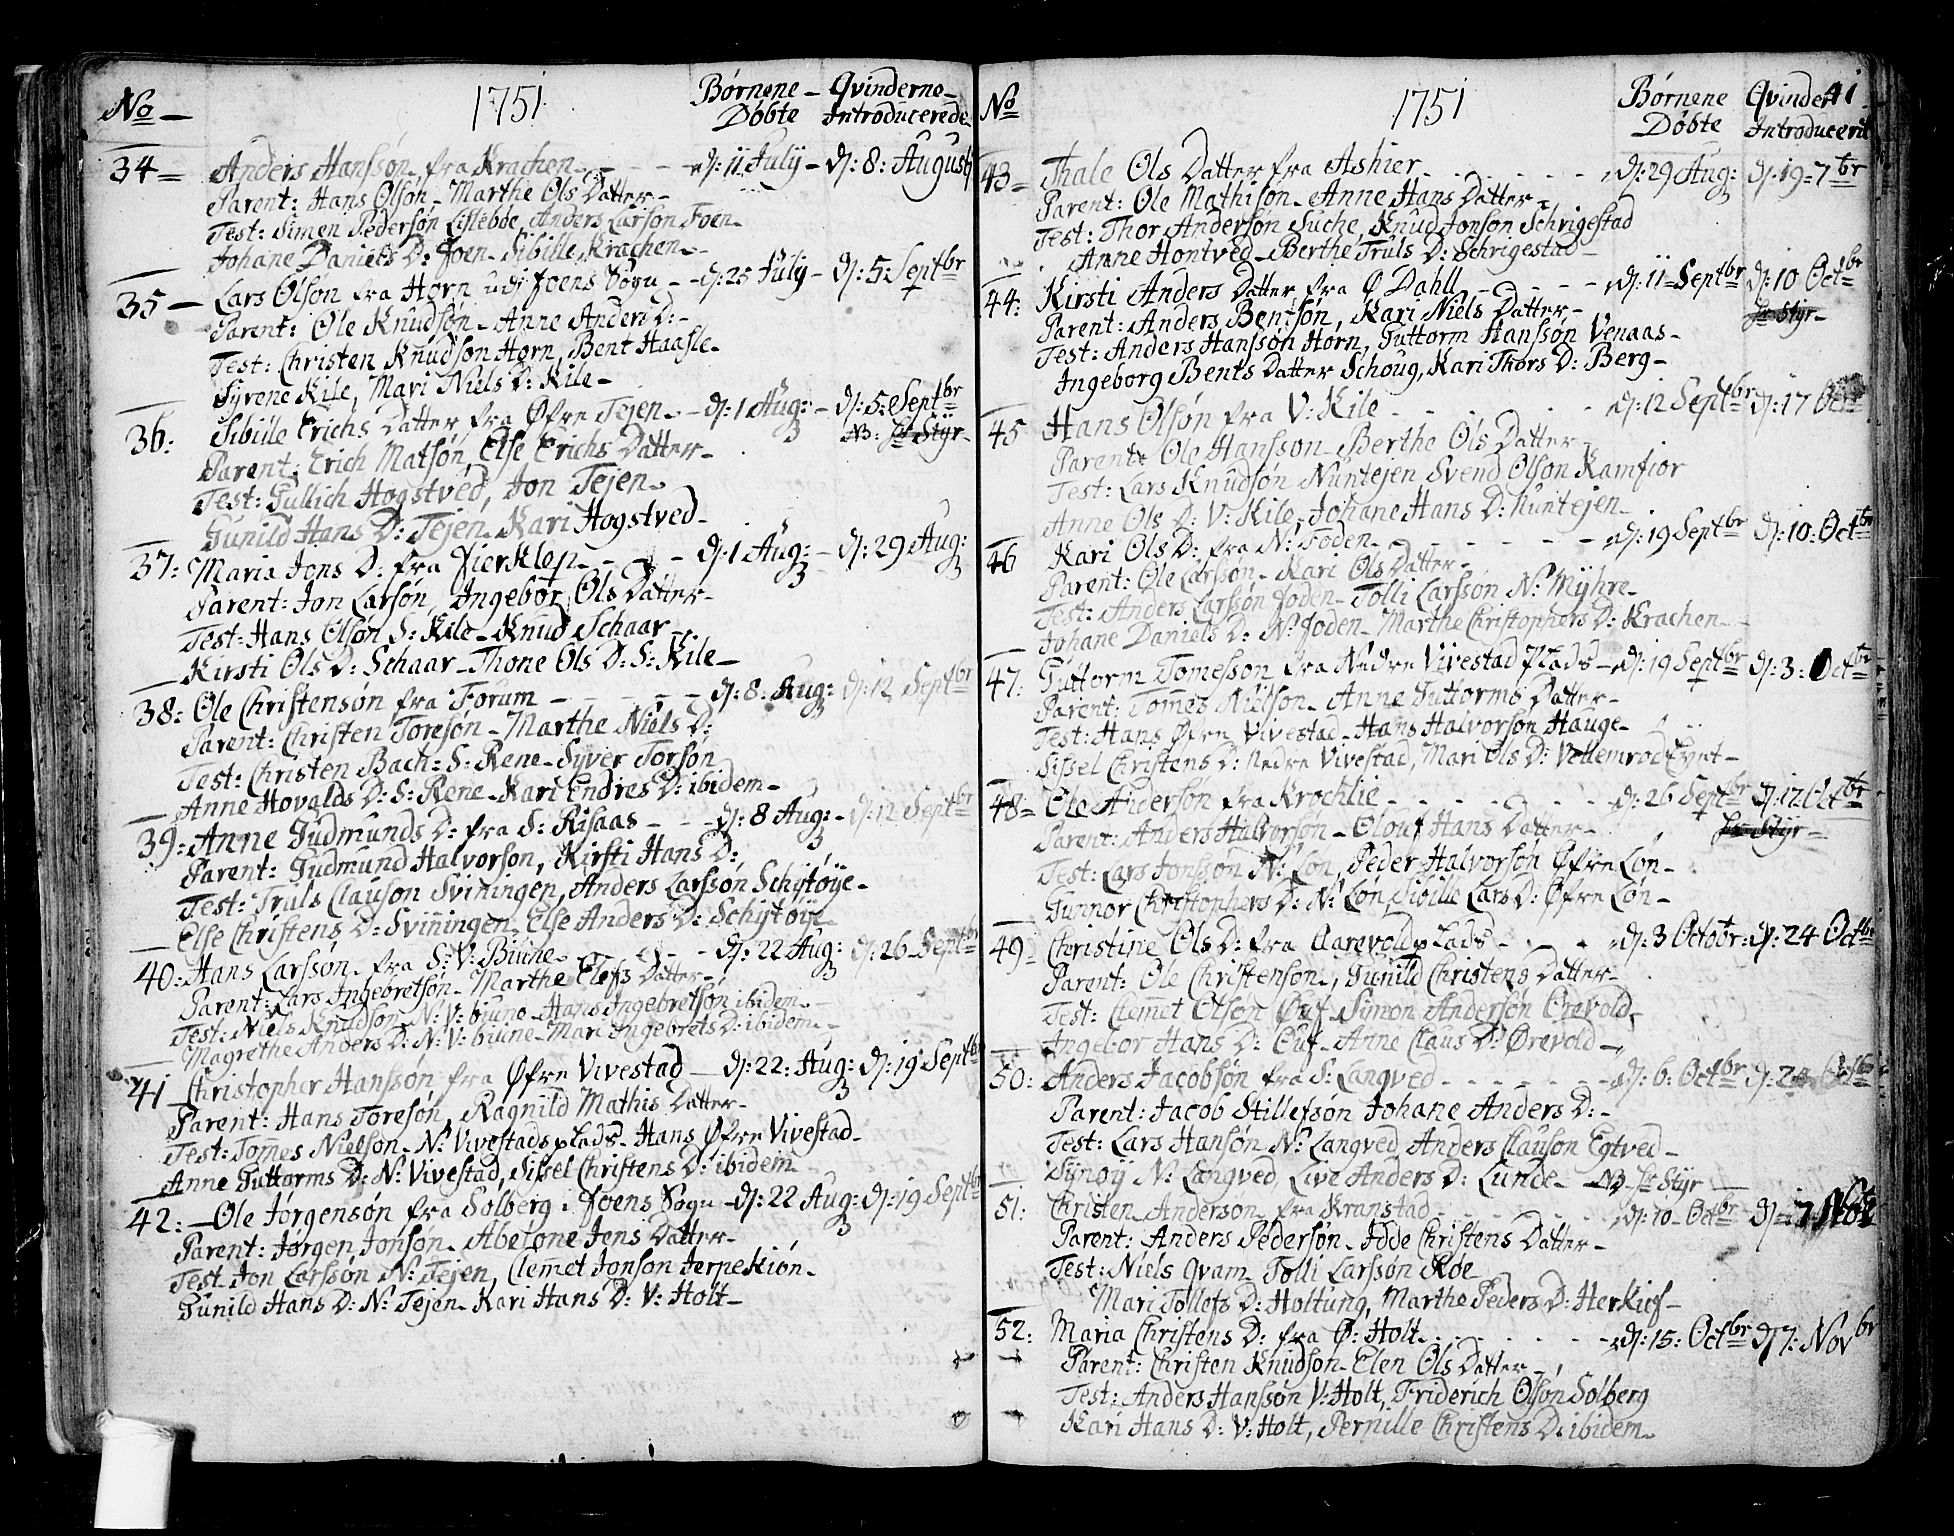 No 1751 Børnene Døbte Qvinderne Introducerede
34 Anders Hanssøn fra Krachen d: 11 July d: 8: Augusti
Parent: Hans Olsøn Marthe Ols Datter
Test: Simen Pedersøn Lisleboe, Anders Larson Foen
Johane Daniels D: Foen Sibille Krachen
35 Lars Olsøn fra Horn udi Foens Sogn d: 25 July d: 5: Septbr
Parent: Ole Knudsøn Anne Anders D:
Test: Christen Knudson Horn, Bent Haasle
Syrene Kile, Mari Niels D: Kile
36: Sibille Erichs Datter fra Øfre Tejen d: 1 Aug: d: 5: Septbr
NB: Styr
Parent: Erich Matsøn, Else Erichs Datter
Test: Gullich Hogstved, Jon Tejen
Gunild Hans D: Tejen Kari Hogstved
37: Maria Jons D: fra Fierklep d: 1 Aug: d: 29 Aug:
Parent: Jon Larsøn, Ingebor Ols Datter
Test: Hans Olsøn S: Kile Knud Schaar
Kirsti Ols D: Schaar Thone Ols D: S: Kile
38: Ole Christensøn fra Forum d: 8: Aug: d: 12 Septbr
Parent: Christen Toresøn Marthe Niels D:
Test: Christen Bach: S: Rene Syver Torson
Anne Hovalds D: S: Rene Kari Endres D: ibidem
39: Anne Gudmunds D: fra S: Risaas d: 8 Aug: d: 12 Septbr
Parent: Gudmund Halvorson, Kirsti Hans D:
Test: Truls Clauson Sviningen, Anders Larssøn Schytøye
Else Christens D: Svinningen Else Anders D: Schytøye
40: Hans Larssøn fra S: V: Biúne d: 22 Aug: d: 26 Septbr
Parent: Lars Ingebretsøn Marthe Elefs Datter
Test: Niels Knudson N: V: biune Hans Ingebretsøn ibidem
Magrethe Anders D: N: V: biúne Mari Ingebrets D: ibidem
41 Christopher Hanssøn fra Øfre Vivestad d: 22: Aug: d: 19 Septbr
Parent: Hans Toresøn, Ragnild Mathis Datter
Test: Tomes Nielson N: Vivestads plads Hans Øfre Vivestad
Anne Guttorms D: N: Vivestad, Sissel Christens D: ibidem
42: Ole Jørgensøn fra Solberg i Foens Sogn d: 22 Aug: d: 19 Septbr
Parent: Jørgen Jonson Abelone Jens Datter
Test Jon Larssøn N: Tejen, Clemet Jonson Jerpekiøn
Gunild Hans D: N: Tejen Kari Hans D: V: Holt
No 1751 Børnene Døbte Qvinder Introducered 41
43 Thale Ols Datter fra Ashier d: 29 Aug: d: 19 7br
Parent: Ole Mathisøn Anne Hans Datter
Test: Thor Andersøn Suche, Knud Jonsøn Schrigestad
Anne Hontved Berthe Truls D: Schrigestad
44: Kirsti Anders Datter fra Ø Dahll d: 11 Septbr d: 10 Octbr
Styr
Parent: Anders Bentsøn, Kari Niels Datter
Test: Anders Hanssøn Horn, Guttorm Hanssøn Venaas
Ingeborg Bents Datter Schoug, Kari Thors D: Berg
45 Hans Olsøn fra V: Kile d: 12 Septbr d: 17 Octbr
Parent: Ole Hansson Berthe Ols Datter
Test: Lars Knudsøn Nuntejen Svend Olson Kamfior
Anne Ols D: V: Kile, Johane Hans D: Nuntejen
46 Kari Ols D: fra N: Foden d: 19 Septbr d: 10: Octbr
Parent: Ole Larssøn Kari Ols Datter
Test: Anders Larssøn Foden Tolli Larssøn N: Myhre
Johane Daniels D: N: Foden Marthe Christophers D: Krachen
47: Guttorm Tomesson fra Nedre Vivestad plads d: 19 Septbr d: 3: Octbr
Parent: Tomes Nielson Anne Guttorms Datter
Test: Hans Øfre Vivestad Hans Halvorson Hauge
Sissel Christens D: Nedre Vivestad, Mari Ols D: Vellemrod
48 Ole Andersøn fra Krochlie d: 26 Septbr d: 17 Octbr
Styr
Parent: Anders Halvorson Olouf Hans Datter
Test: Lars Jonssøn N: Løn, Peder Halvorsøn Øfre Løn
Gunnor Christophers D: N: Løn Sibille Lars D: Øfre Løn
49 Christine Ols D: fra Aarevold plads d: 3 Octobr: d: 24 Octbr
Parent: Ole Christenson, Gunild Christens Datter
Test: Clemet Olsøn Ouf Simon Andersøn Orevold
Ingebor Hans D: Ouf Anne Claus D: Ørevold
50: Anders Jacobsøn fra S: Langved d: 6: Octbr d: 24 Octbr
Parent: Jacob Stillefsøn Johane Anders D:
Test: Lars Hansøn N: Langved Anders Clauson Egtved
Synøy N: Langved, Live Anders D: Lunde NB Styr
51: Christen Anderson fra Kranstad d: 10 Octbr d: 7 Nobr
Parent: Anders Pedersøn Idde Christens Datter
Test: Niels Qvam Tolli Larssøn Røe
Mari Tollefs D: Holtung, Marthe Peders D: Herkief
52: Maria Christens D: fra Ø: Holt d: 15: Octbr d 7: Novbr
Parent: Christen Knudson Elen Ols Datter
Test: Anders Hanssøn V: Holt, Friderich Olsøn Solberg
Kari Hans D: V: Holt, Pernille Christens D: ibidem